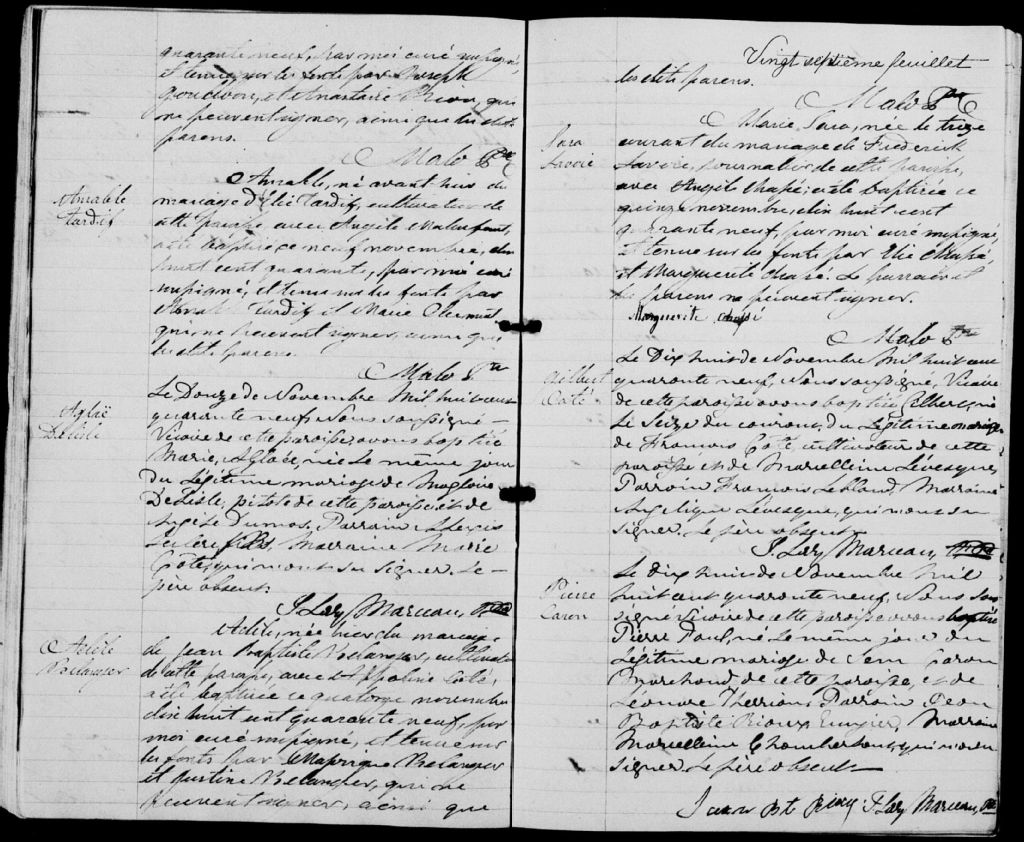 quarante neuf, par moi curé soussigné,
et tenu sur les fonts par Joseph
et Anastasie Riou, qui
ne peuvent signer, ainsi que les dits
parens.
Malo Ptre
Amable
Tardif
Amable, né avant hier du
mariage d'Elie Tardif, cultivateur de
cette paroisse avec Angèle
a été baptisé ce neuf novembre, dix
huit cent quarante, par moi curé
soussigné, et tenu sur les fonts par
Tardif et Marie
qui ne peuvent signer, ainsi que
les dits parens.
Malo Ptre
Aglaé
Delisle
Le Douze de Novembre Mil huit cent
quarante neuf, Nous soussigné
Vicaire de cette paroisse avons baptisé
Marie, Aglaée, née le même jour
du Légitime mariage de Magloire
DeLisle, pilote de cette paroisse et de
Angèle Dumas. Parrain Alexis
Leclerc fils, Marraine Marie
Côté, qui n'ont su signer. Le
père absent.
J. Laz Marceau, Ptre
Adèle
Belanger
Adèle, née hier du mariage
de Jean Baptiste Belanger, cultivateur
de cette paroisse, avec Côté,
a été baptisée ce quatorze novembre
dix huit cent quarante neuf, par
moi curé soussigné, et tenue sur
les fonts par Belanger
et Justine Belanger, qui ne
peuvent signer, ainsi que
Vingt septième feuillet
les dits parens.
Malo Ptre
Sara
Savoie
Marie Sara, née le treize
courant du mariage de Frederick
Savoie, journalier de cette paroisse,
avec Angèle Chapé; a été baptisée ce
quinze novembre, dix huit cent
quarante neuf, par moi curé soussigné,
et tenue sur les fonts par Elie Chapé,
et Marguerite Chapé. Le parrain et
les parens ne peuvent signer.
Marguerite chapé
Malo Ptre
Gilbert
Coté
Le Dix huit de Novembre Mil huit cent
quarante neuf, Nous soussigné, Vicaire
de cette paroisse avons baptisé Gilbert, né
Le Seize du courant, du Légitime mariage
de François Coté, cultivateur de cette
paroisse et de Marcelline Lévesque,
Parrain François Leblond, Marraine
Angelique Lévesque, qui n'ont su
signer. Le père absent
J. Laz Marceau, Ptre
Pierre
Caron
Le dix huit de Novembre Mil
huit cent quarante neuf, Nous sous
signé Vicaire de cette paroisse avons baptisé
Pierre Paul, né le même jour du
Légitime mariage de Caron
Marchand de cette paroisse, et de
Léonore Therrien Parrain Jean
Baptiste Rioux Ecuyer, Marraine
Marcelline Chamberland, qui n'a su
signer. Le père absent
Jean Bte J. Laz Marceau, Ptre